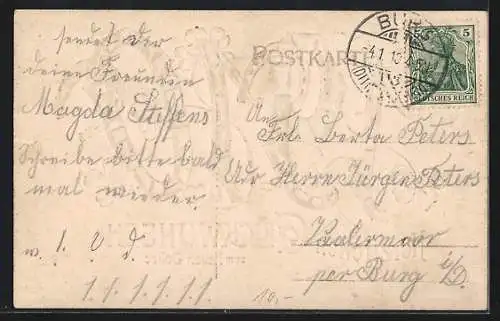 sendet Dir
deine Freundin
Magda Steffens
Schreibe bitte bald
mal wieder.
POSTKARTE
BURG
5
DEUTSCHES REICH
An
Frl. Berta Peters
Adr Herrn Jürgen Peters
Vaalermoor
per Burg i/D.
10,-